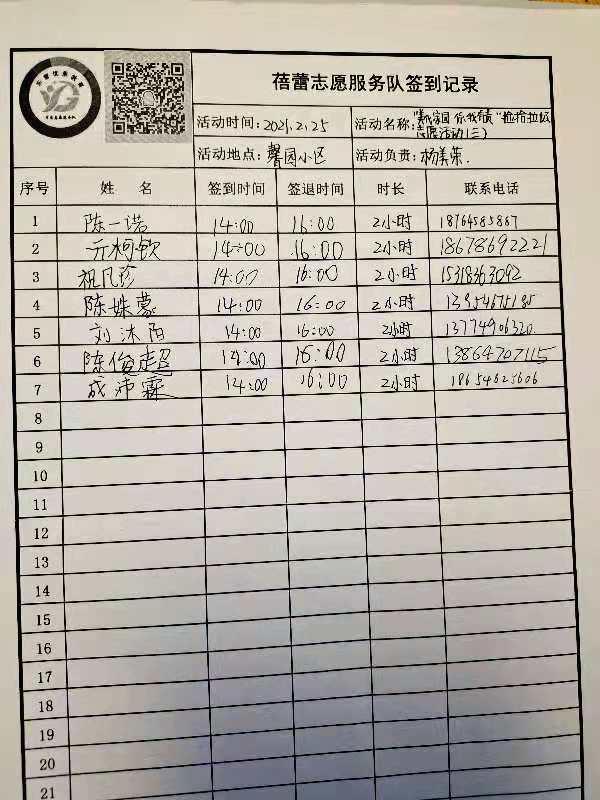 蓓蕾志愿服务队签到记录
活动时间: 2021.2.25 活动名称: 你我有责"捡拾垃圾 志愿活动(三)
活动地点: 馨园小区 活动负责: 杨美荣.
序号 姓 名 签到时间 签退时间 时长 联系电话
1 陈一诺 14:00 16:00 2小时 18764585887
2 亓柯钦 14:00 16:00 2小时 18678692221
3 祝凡珍 14:00 16:00 2小时 15318363092
4 陈姝蒙 14:00 16:00 2小时 13954675185
5 刘沐阳 14:00 16:00 2小时 13774906320
6 陈俊超 14:00 16:00 2小时 13864707115
7 成沛霖 14:00 16:00 2小时 18654625606
8
9
10
11
12
13
14
15
16
17
18
19
20
21